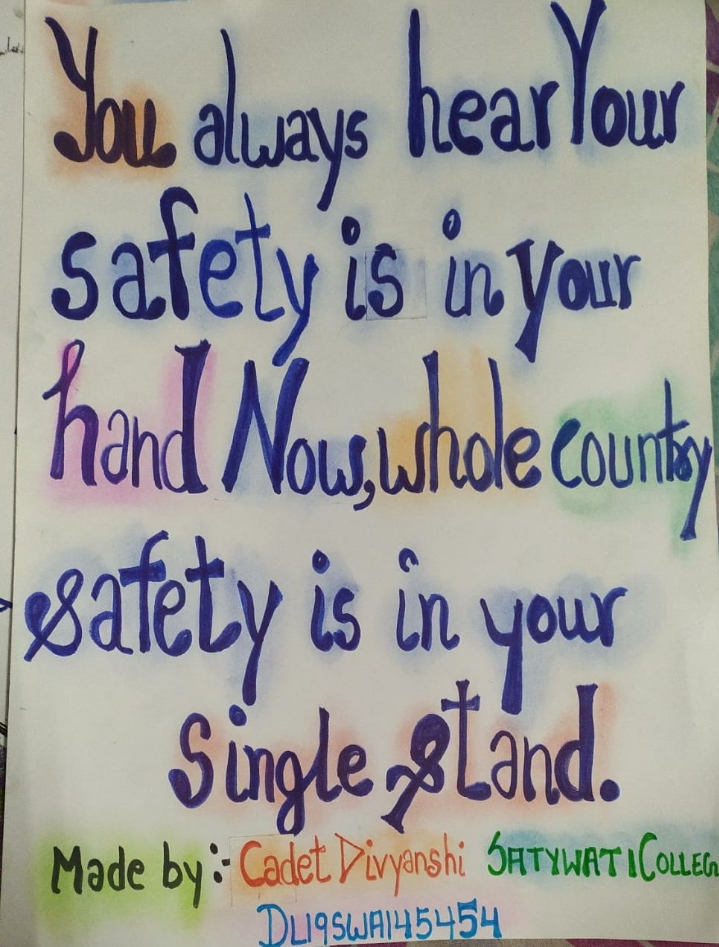 You always hear Your
safety is in your
hand Now, whole country
safety is in your
single stand.
Made by:- Cadet Divyanshi SATYWATI COLLEG
DL19SWA145454